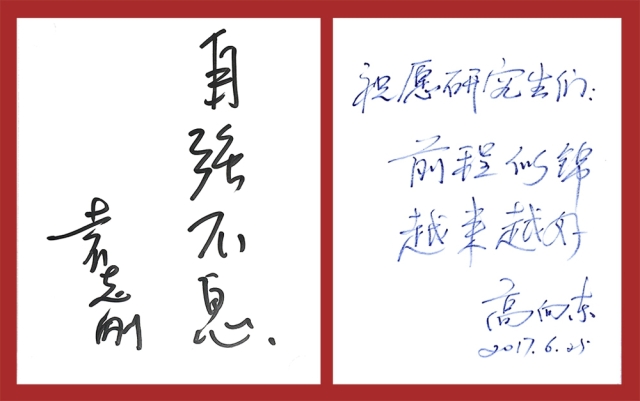 自强不息.
袁志刚
祝愿研究生们:
前程似锦
越来越好
高向东
2017.6.25